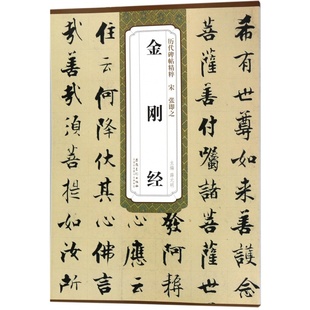 历代碑帖精粹 宋 张即之
金刚经
主编
希有世尊如来善護念
菩薩善付囑諸菩薩世
發阿耨
應云
住云何降伏其心佛言
哉善哉須菩提如汝所